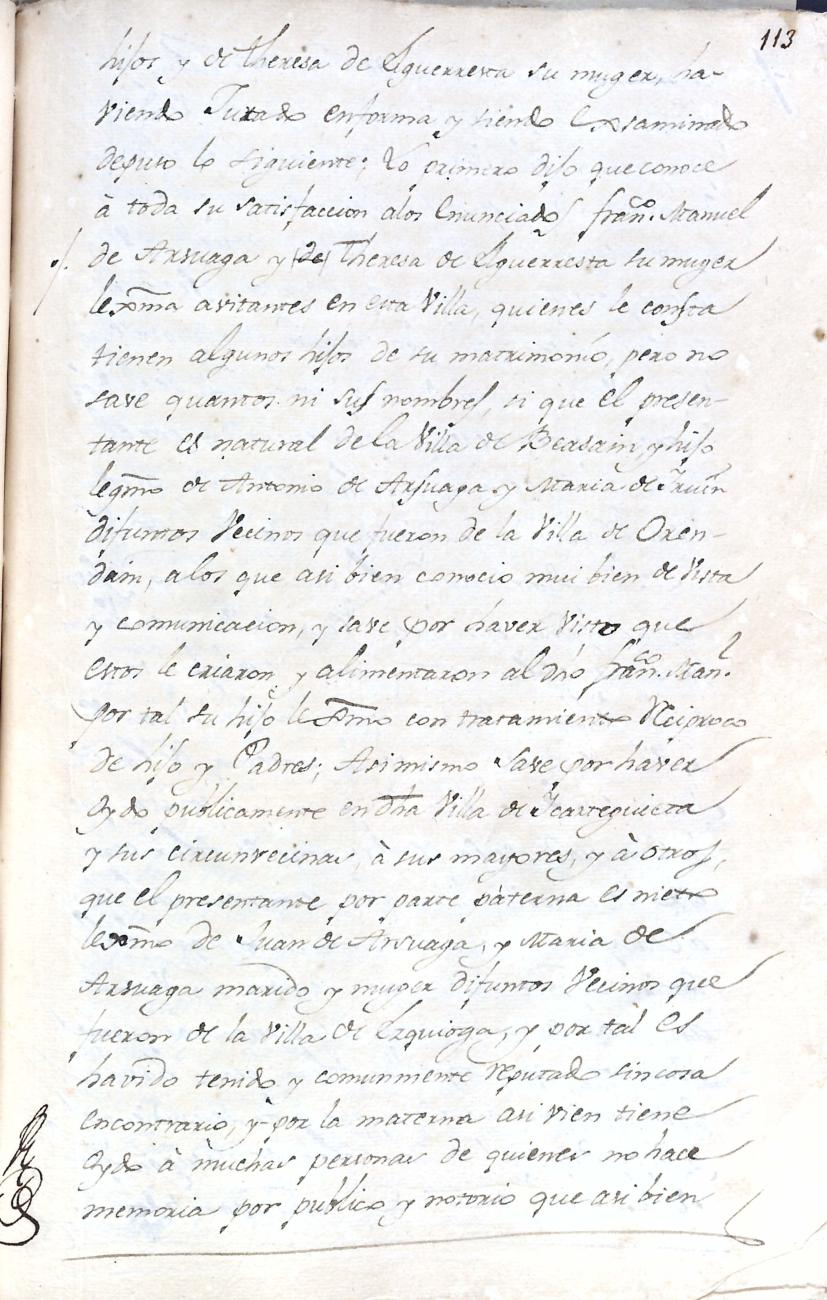 113
hijos y de Theresa de Eguerresta su muger, ha-
viendo Jurado enforma y siendo Exsaminado
depuso lo siguiente; Lo primero dijo que conoce
à toda su satisfaccion alos Enunciados franco. Manuel
de Arsuaga y (de) Theresa de Eguerresta su muger
lexma avitantes en esta Villa, quienes le consta
tienen algunos hijos de su matrimonio, pero no
save quantos ni sus nombres, si que el presen-
tante es natural de la Villa de Beasain, y hijo
legmo de Antonio de Arsuaga y Maria de
difuntos Vecinos que fueron de la Villa de Oren-
dain, alos que asi bien conocio mui bien de vista
y comunicacion, y save por haver Visto que
estos le criaron y alimentaron al dho franco. Manl.
por tal su hijo lexmo con tratamiento Reciproco
de hijo y Padres; Asimismo save por haver
Oydo publicamente en dha Villa de Icazteguieta
y sus circunvecinas, à sus mayores, y à otros,
que el presentante por parte paterna es nieto
lexmo de Juan de Arsuaga, y Maria de
Arsuaga marido y muger difuntos Vecinos que
fueron de la Villa de Ezquioga, y por tal es
havido tenido y comunmente reputado sin cosa
encontrario, y por la materna asi vien tiene
Oydo à muchas personas de quienes no hace
memoria por publico y notorio que asi bien